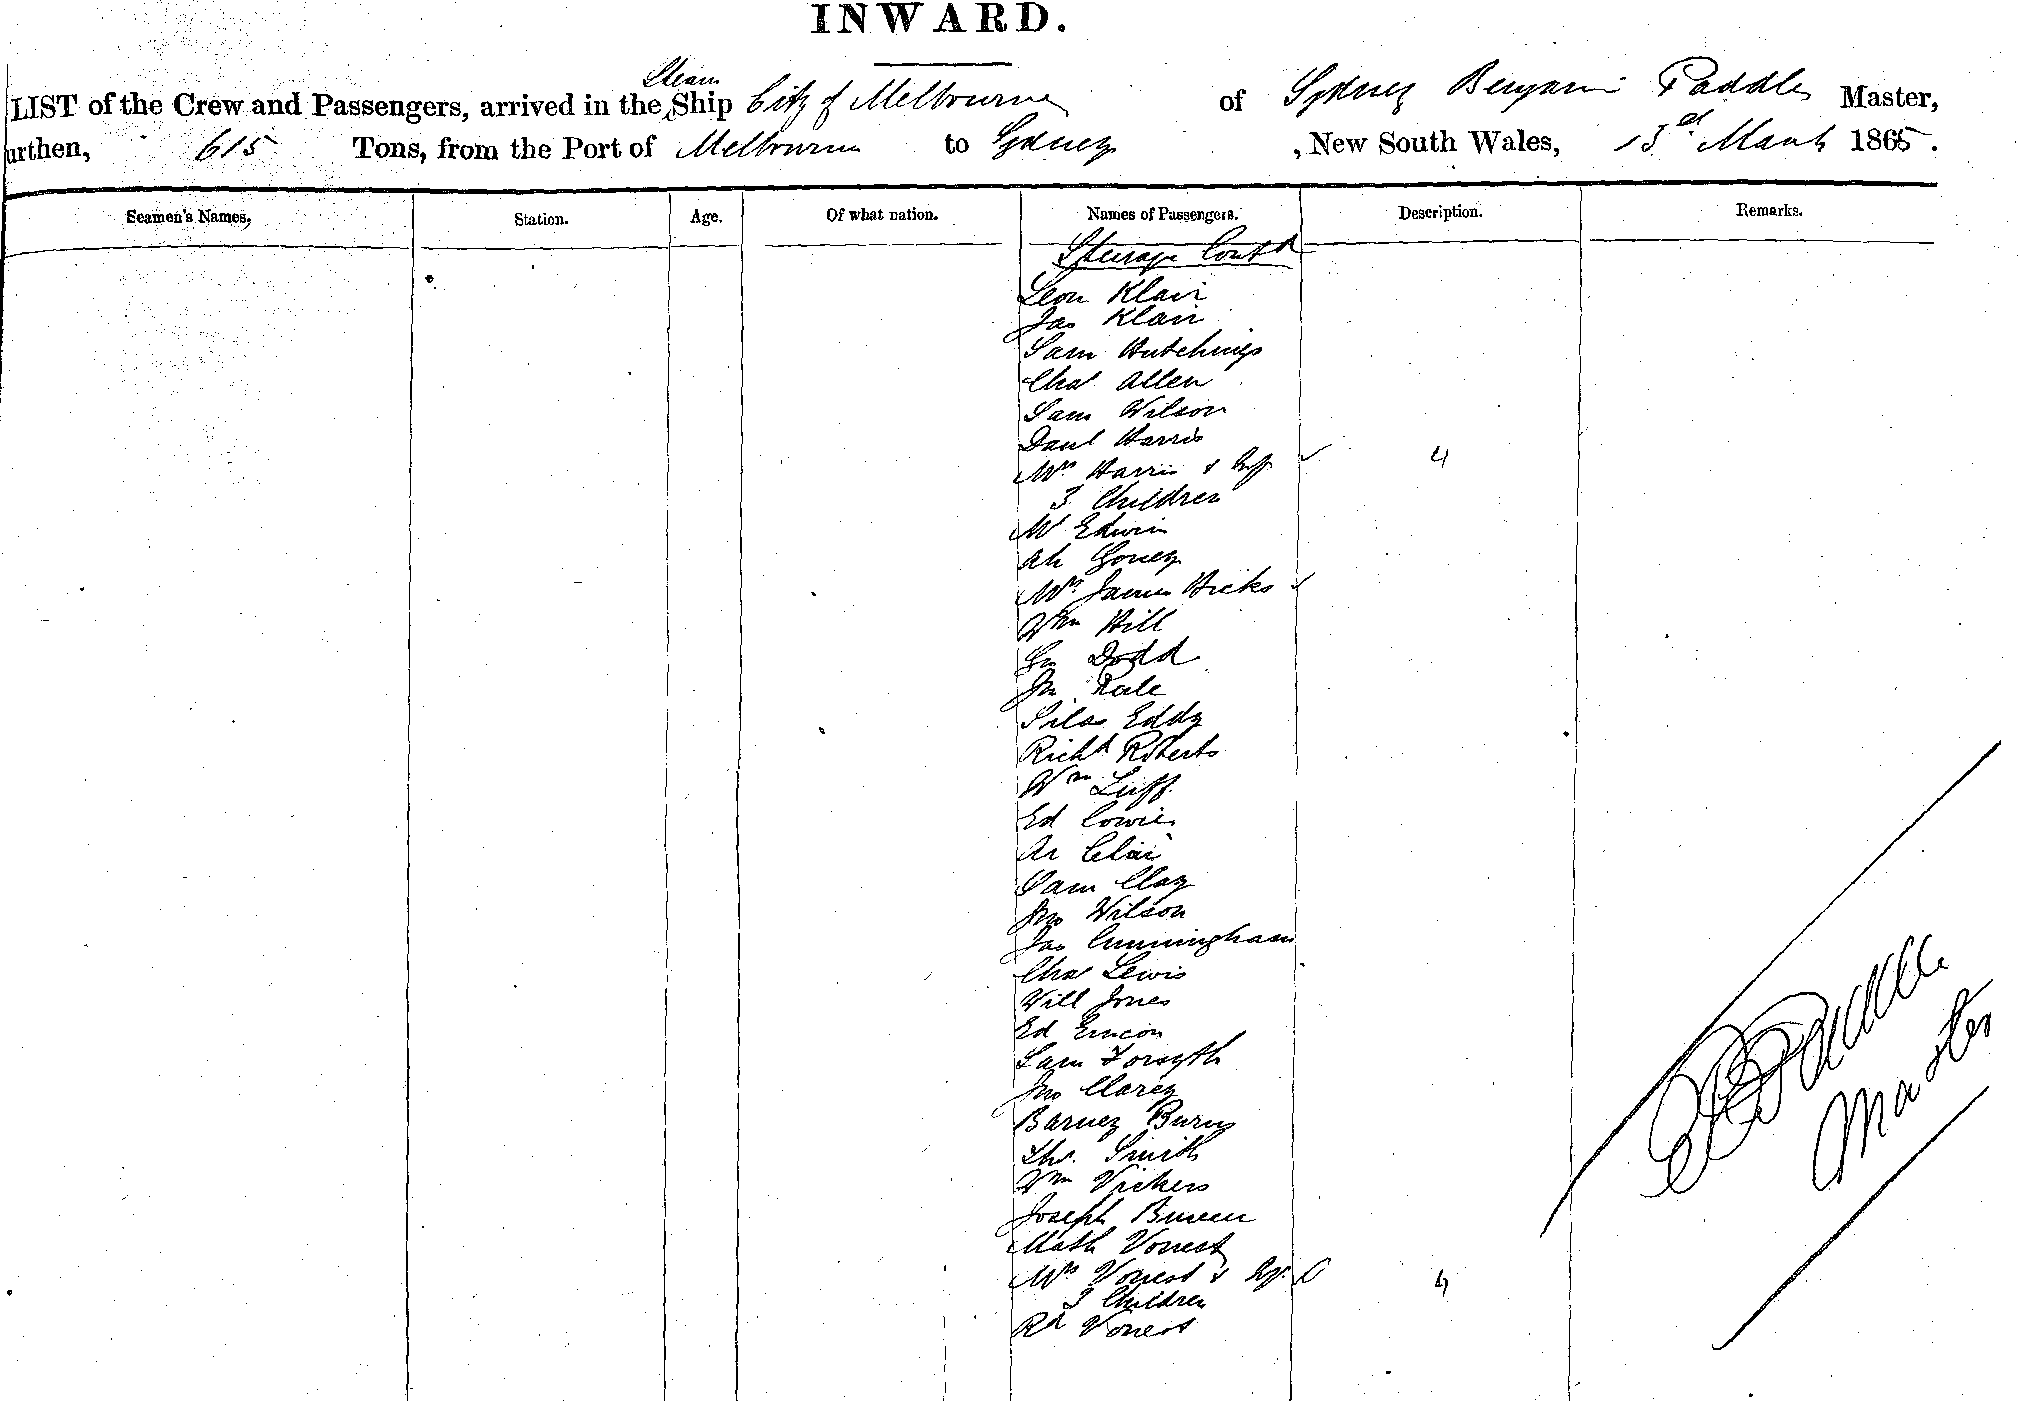 INWARD.
LIST of the Crew and Passengers, arrived in the Steam Ship City of Melbourne of Sydney Benjamin Paddle Master,
urthen, 615 Tons, from the Port of Melbourne to Sydney, New South Wales, 13th March 1865.
Seamen's Names, Station. Age. Of what nation. Names of Passengers. Description. Remarks.
Steerage Contd
Leon Klair
Jas Klair
Sam Hutchings
Chas Allen
Sam Wilson
Danl Harris
Mrs Harris & Inf 4
3 Children
Mr Edwin
Ah Goney
Mrs James Hicks
Wm Hill
Geo Dodd
Jno Rale
Silas Eddy
Richd Roberts
Wm Luff
Ed Cowie
Ar Clair
Sam Clay
Jno Wilson
Jas Cunningham
Chas Lewis
Will Jones
Ed
Sam Forsyth
Jno Clarey
Barney Burns
Thos. Smith
Wm Vickers
Joseph
Math Vonest
Mrs Vonest & Inf. 4
3 Children
Rd Vonest
B Paddle
Master